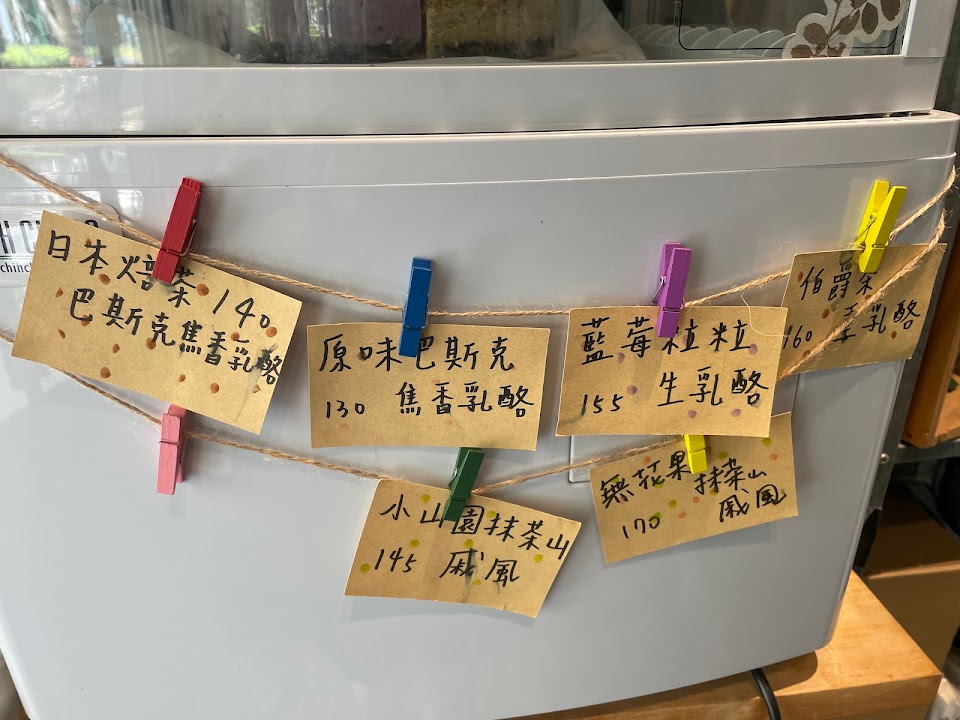 日本焙茶 140
巴斯克焦香乳酪
原味巴斯克
130 焦香乳酪
藍莓粒粒
155 生乳酪
伯爵茶
160 生乳酪
小山園抹茶山
145 戚風
無花果抹茶山
170 戚風